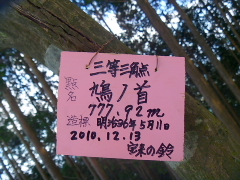 三等三角点
點名 鳩ノ首
777.92m
造標 明治36年5月11日
2010.12.13
宝来の鈴